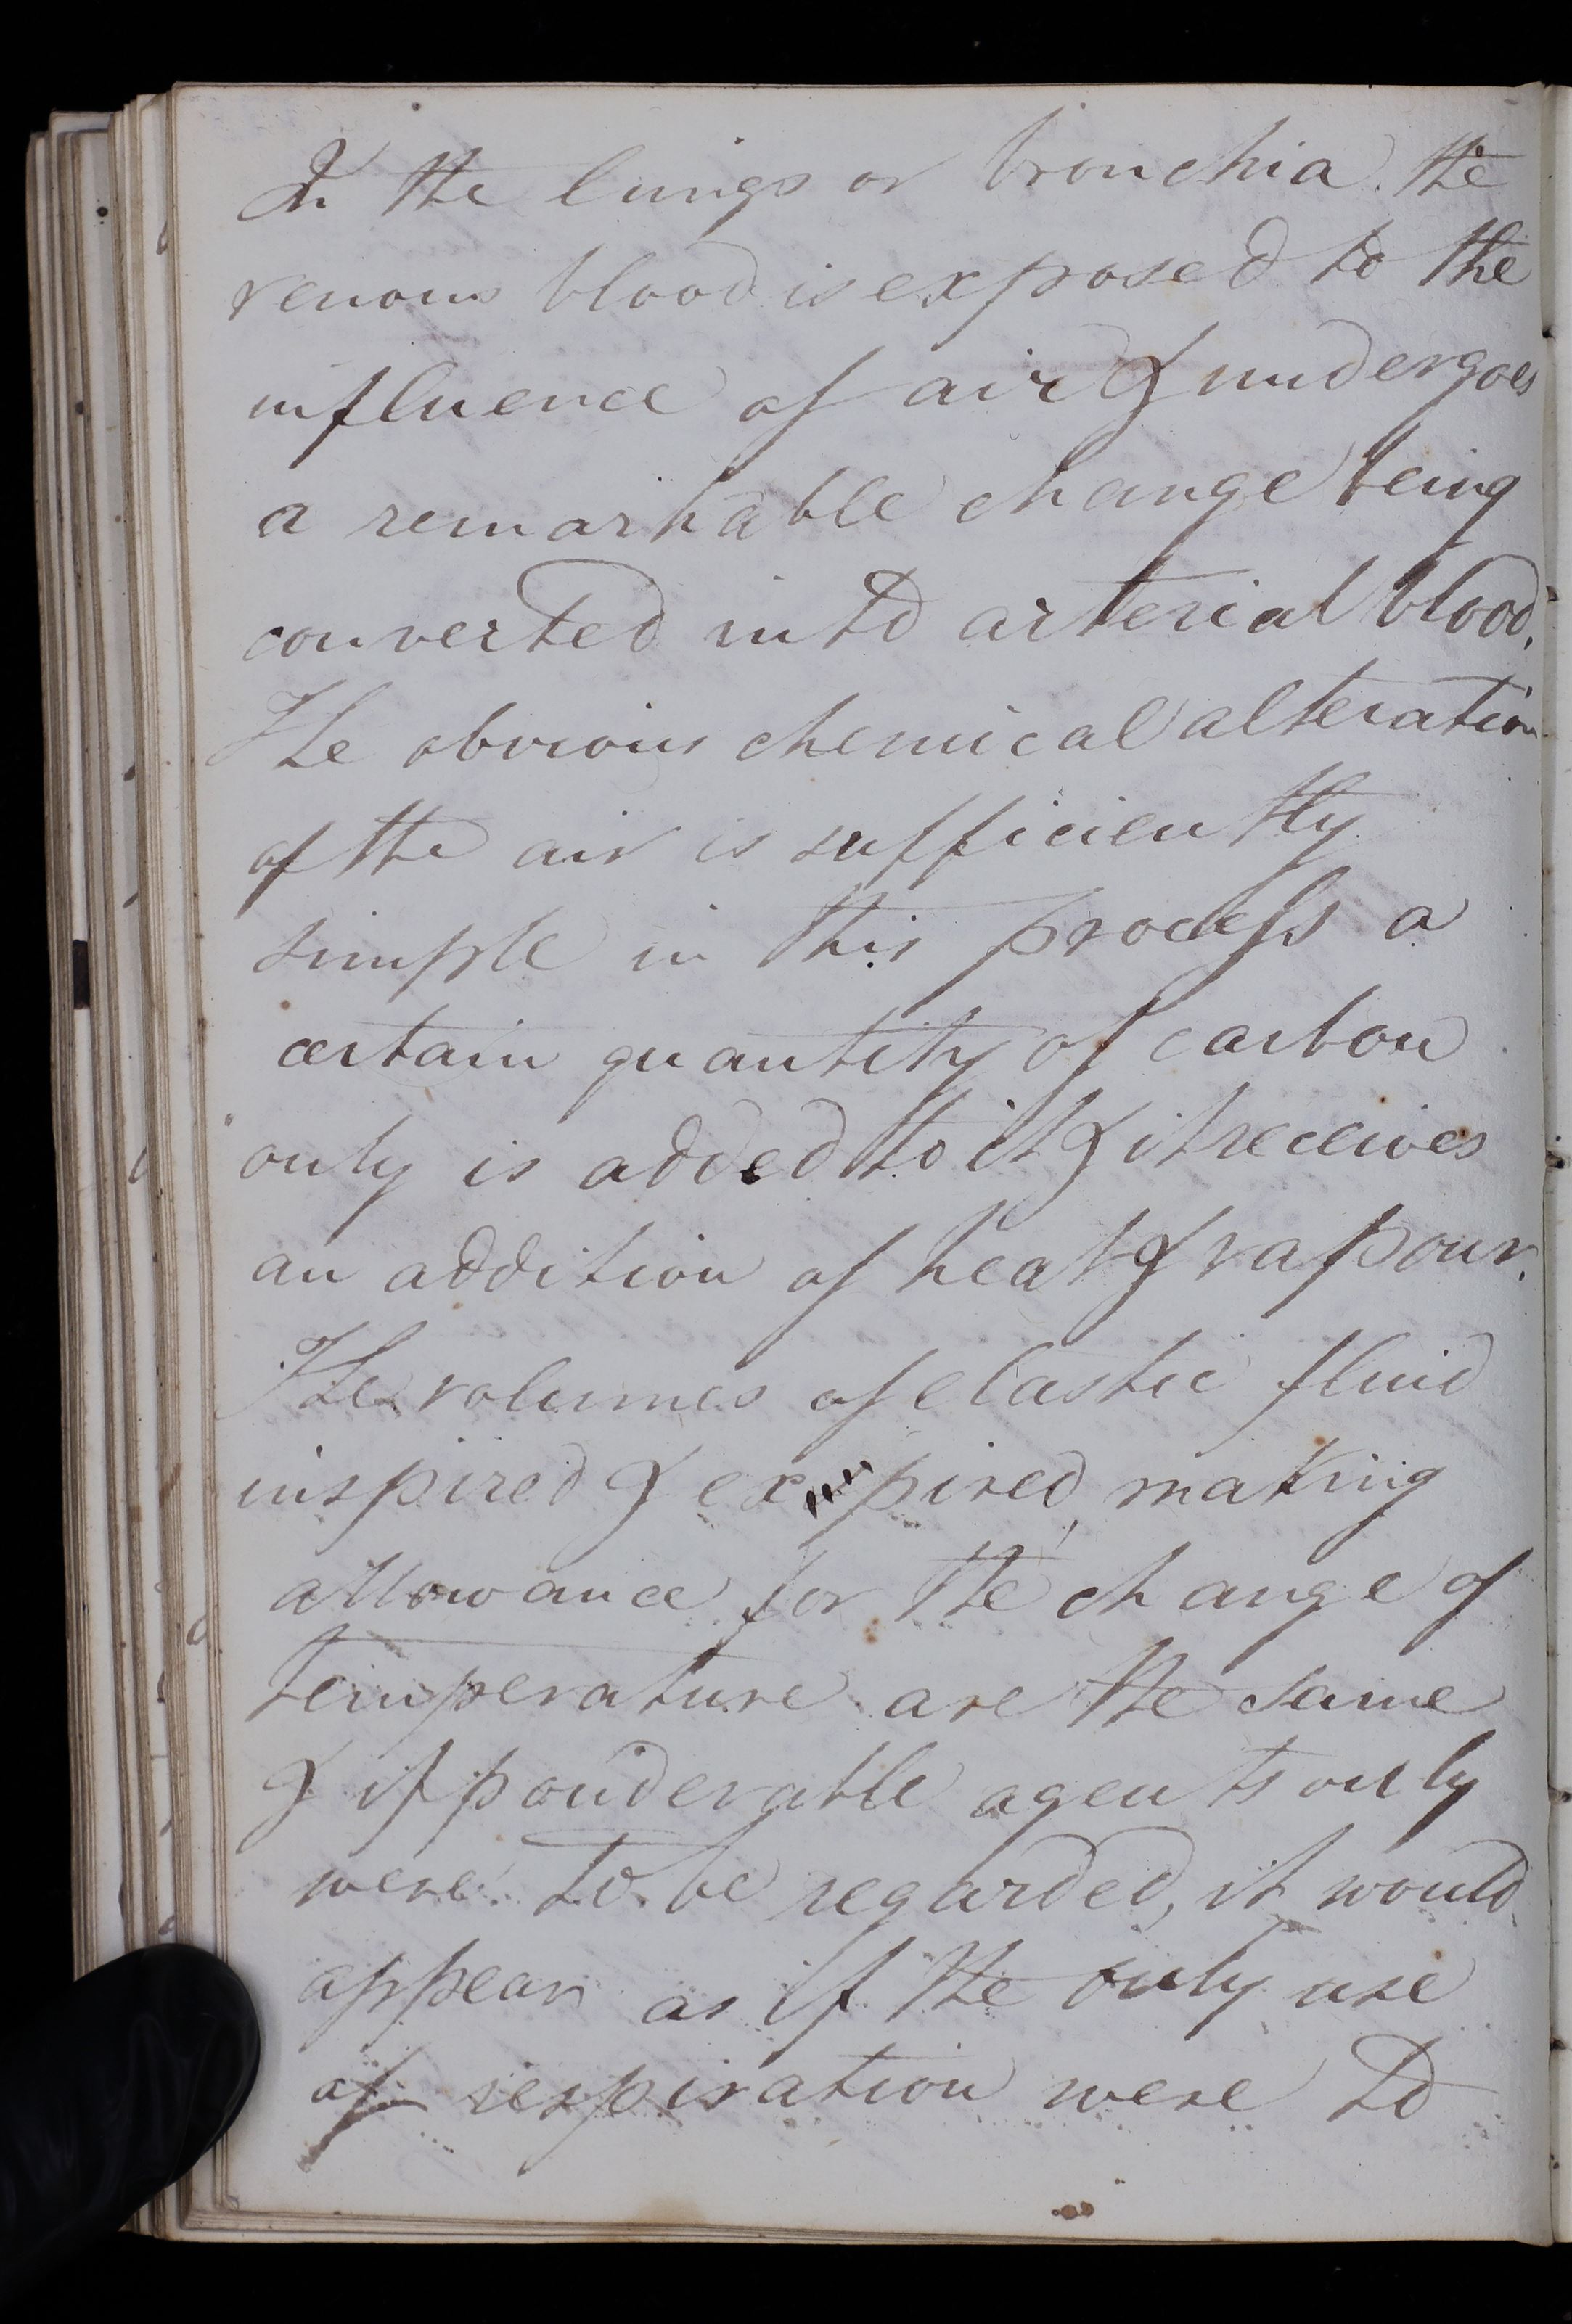 In the lungs or bronchia. the
venous blood is exposed to the
influence of air & undergoes
a remarkable change being
converted into arterial blood.
The obvious chemical alteration
of the air is sufficiently
simple in this process a
certain quantity of carbon
only is added to it & it receives
an addition of heat & vapour.
The volumes of elastic fluid
inspired & expired, making
allowance for the change of
temperature are the same
& if ponderable agents only
were to be regarded, it would
appear as if the only use
of respiration were to